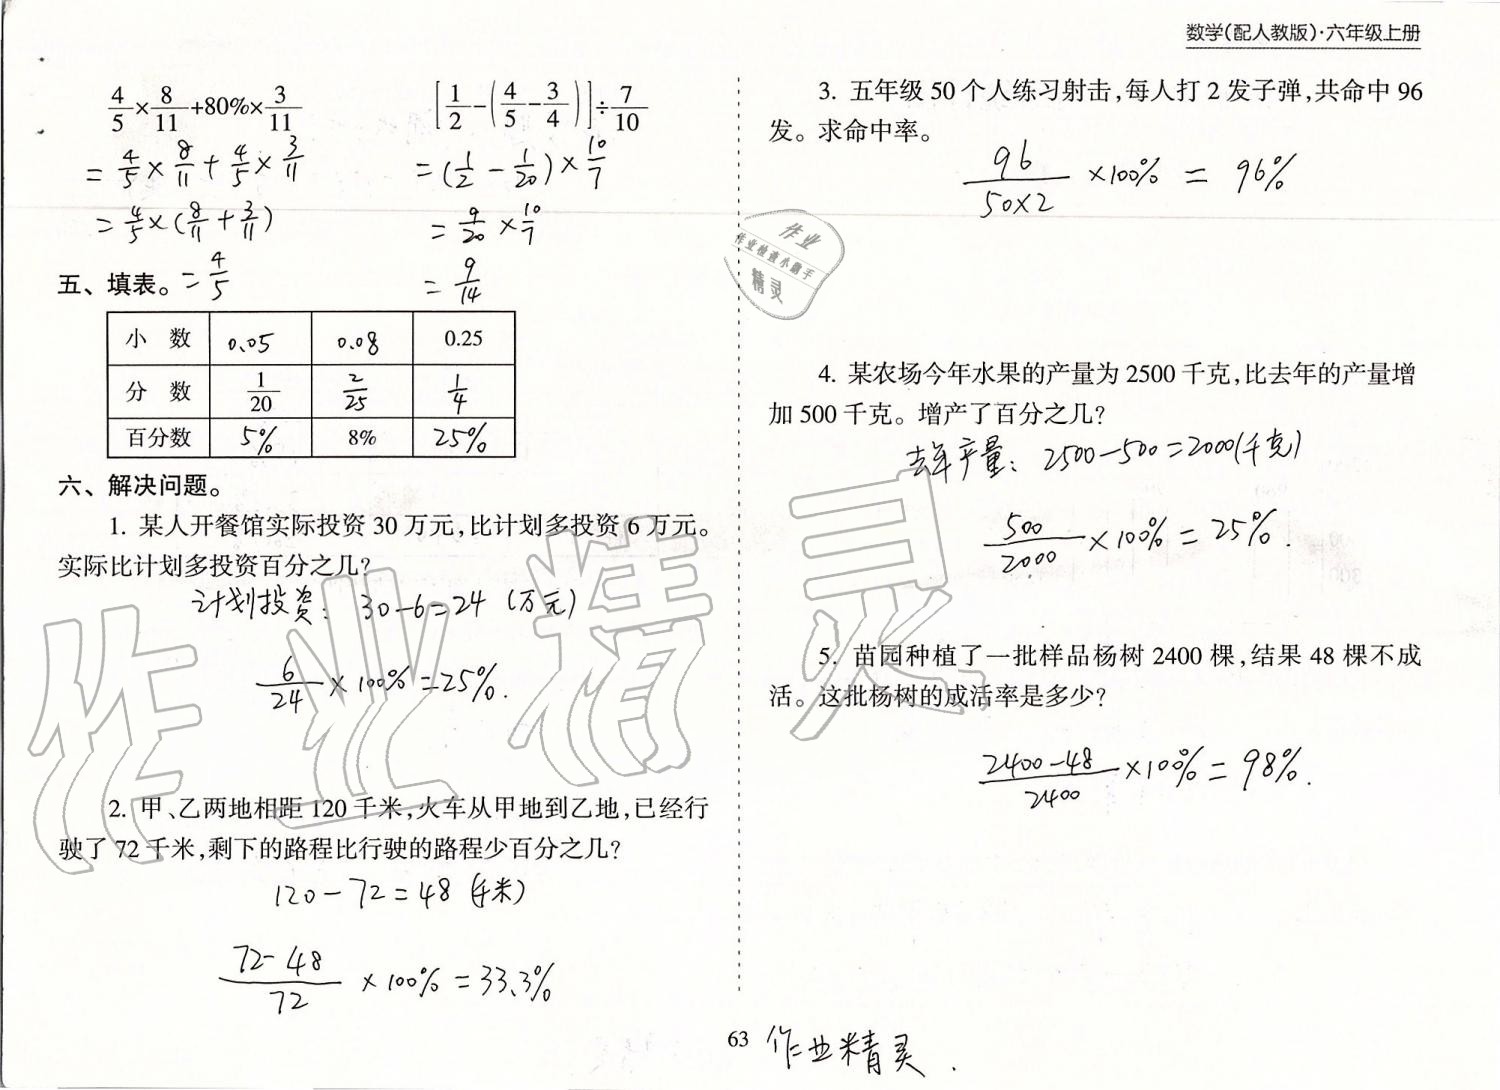 数学(配人教版)·六年级上册
4/5×8/11+80%×3/11
=4/5×8/11+4/5×3/11
=4/5×(8/11+3/11)
=4/5
[1/2-(4/5-3/4)]÷7/10
=(1/2-1/20)×10/7
=9/20×10/7
=9/14
五、填表。
小 数 0.05 0.08 0.25
分 数 1/20 2/25 1/4
百分数 5% 8% 25%
六、解决问题。
1. 某人开餐馆实际投资30万元,比计划多投资6万元。
实际比计划多投资百分之几?
计划投资: 30-6=24(万元)
6/24×100%=25%.
2. 甲、乙两地相距120千米,火车从甲地到乙地,已经行
驶了72千米,剩下的路程比行驶的路程少百分之几?
120-72=48(千米)
(72-48)/72×100%=33.3%
3. 五年级50个人练习射击,每人打2发子弹,共命中96
发。求命中率。
96/(50×2)×100%=96%
作业
作业检查小题手
精灵
4. 某农场今年水果的产量为2500千克,比去年的产量增
加500千克。增产了百分之几?
去年产量: 2500-500=2000(千克)
500/2000×100%=25%.
5. 苗园种植了一批样品杨树2400棵,结果48棵不成
活。这批杨树的成活率是多少?
(2400-48)/2400×100%=98%.
作业精灵
63
作业精灵.